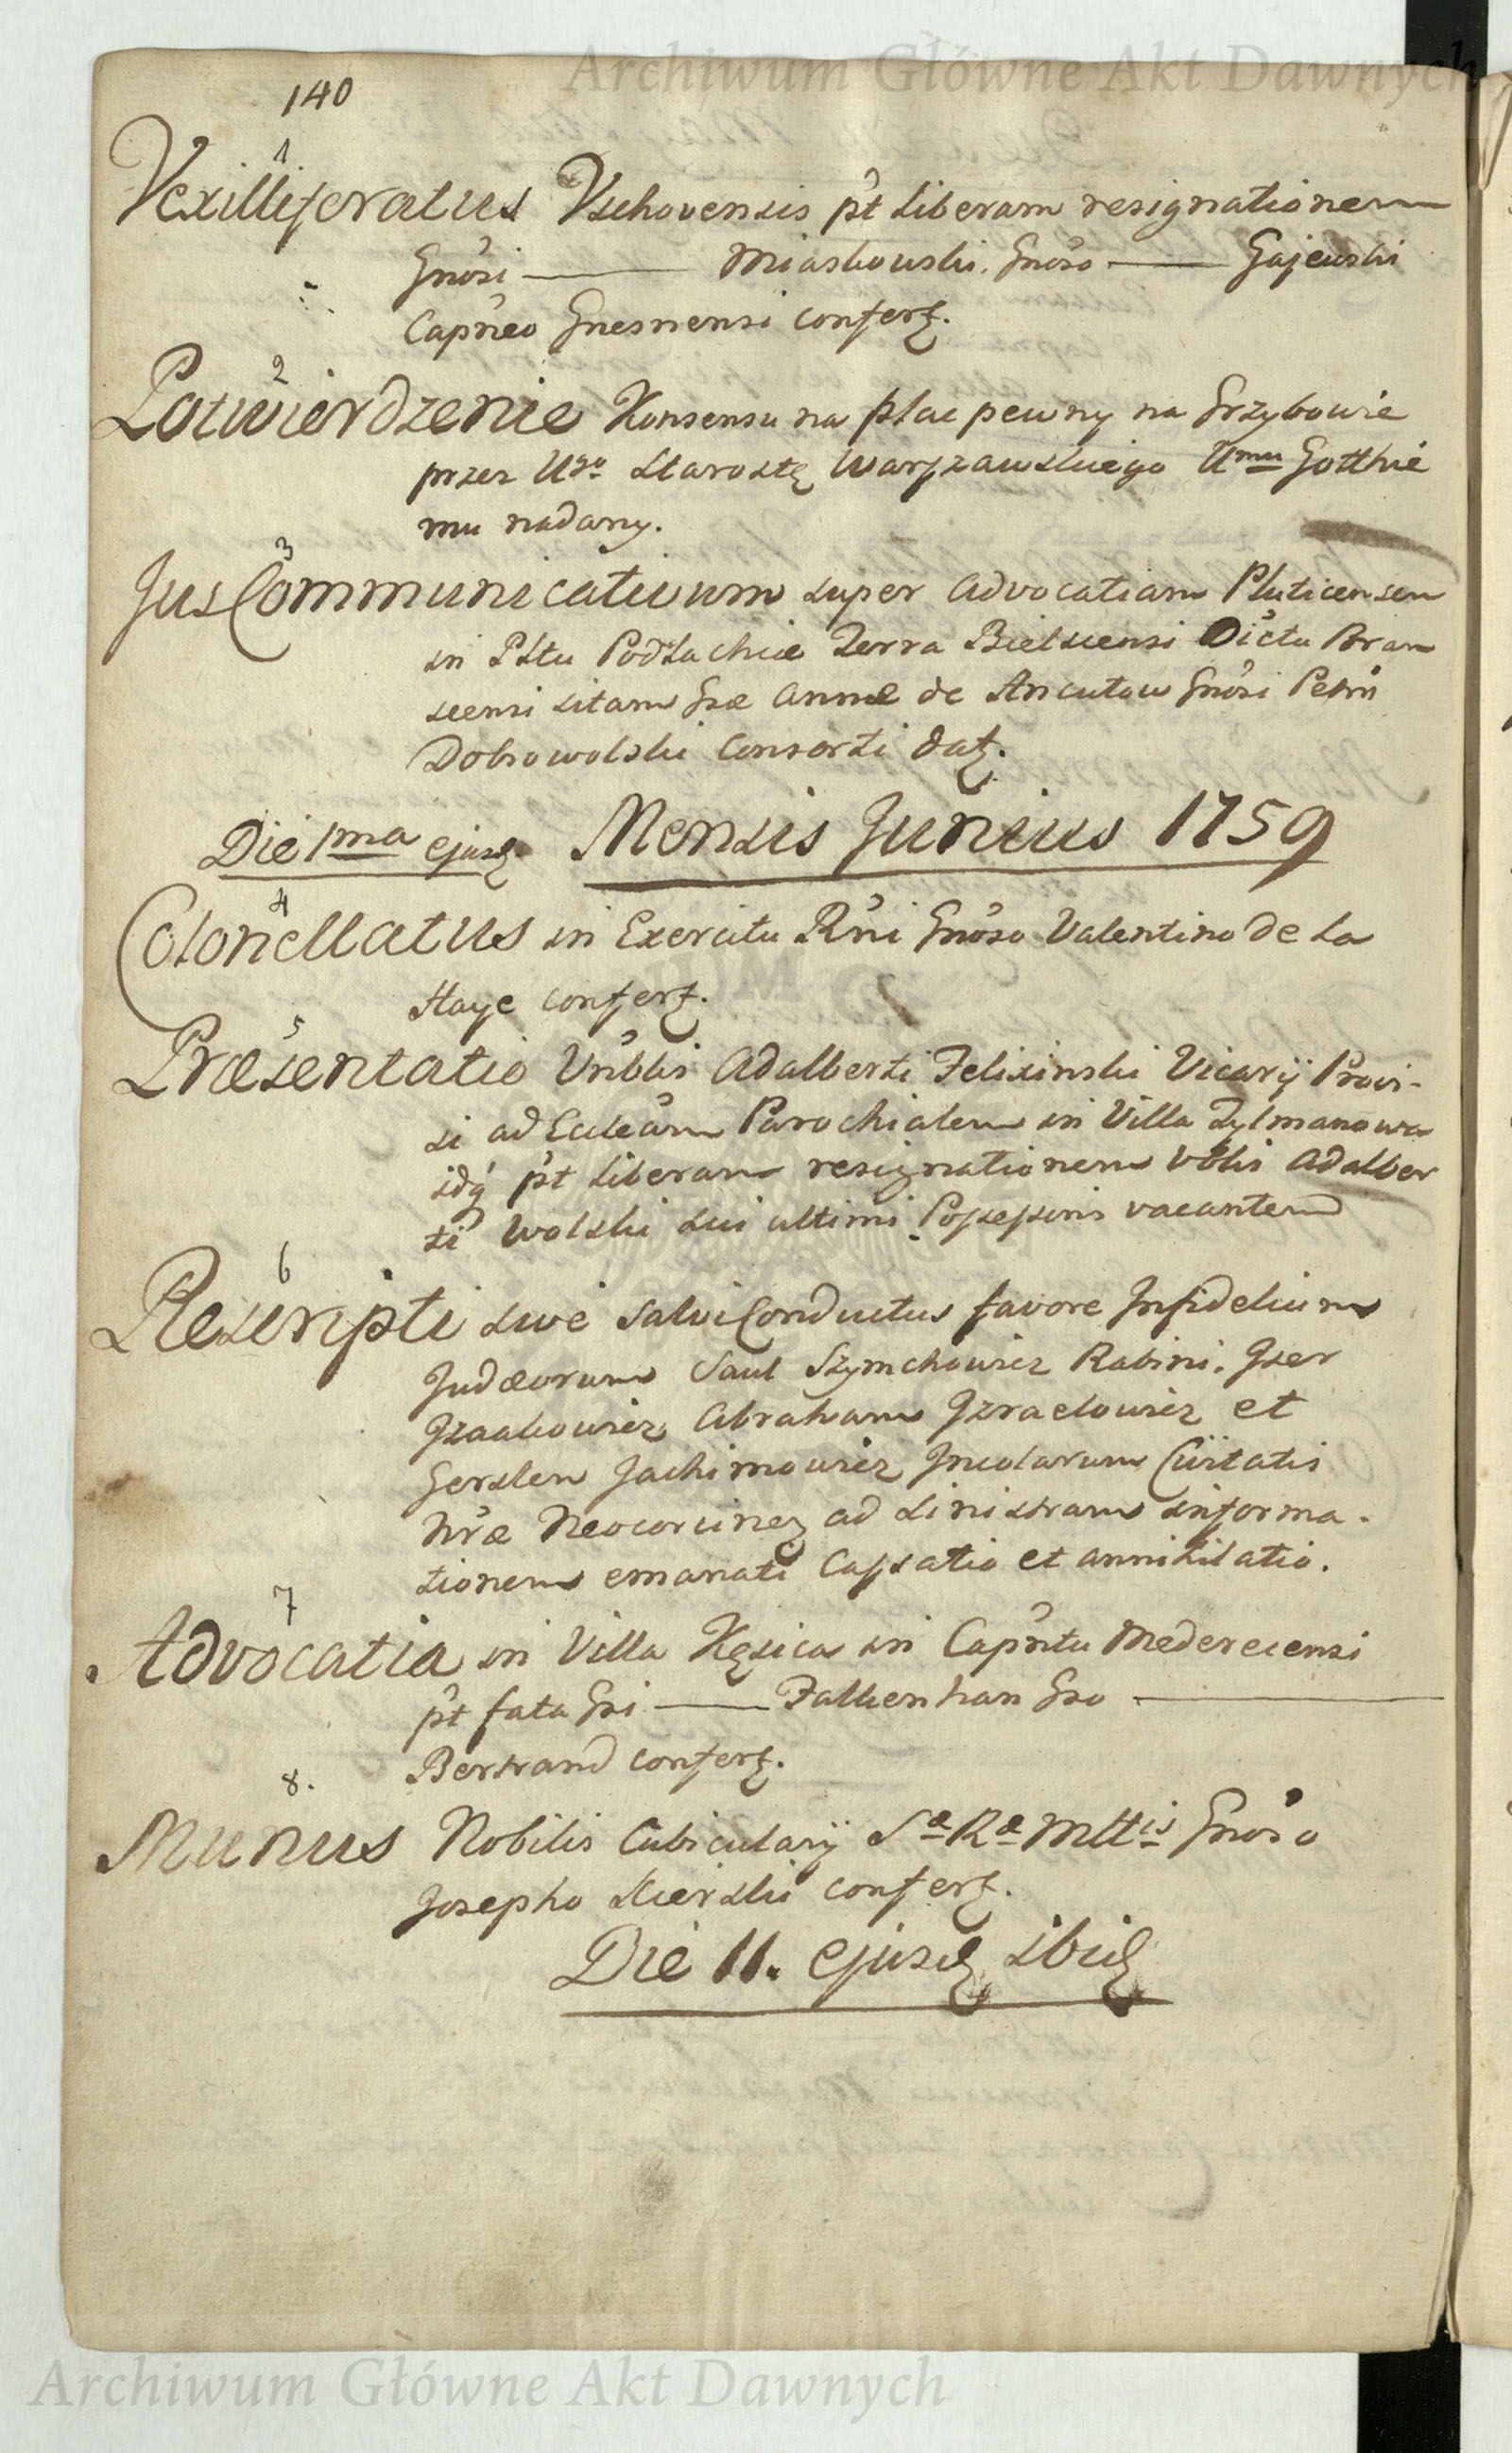 Archiwum Główne Akt Dawnych
140
1
Vexilliferatus Vschovensis p̃t liberam resignationem
Gnõsi — Miaskowski, Gnõso — Gajewski
Capñeo Gnesnensi confert.
2
Potwierdzenie Konsensu na plac pewny na Grzybowie
przez Ugo Starostę Warszawskiego Umu Gotthie
mu nadany.
3
Jus Communicativum super Advocatiam Pluticensem
in Pltu Podlachiæ Terra Bielscensi Dictu Bran
scensi sitam Gsæ Annæ de Ancutow Gnõsi Petri
Dobrowolski Consorti dat.
Die 1ma ejusd. Mensis Junius 1759
4
Colonellatus in Exercitu R̃ni Gnõso Valentino de La
Haye confert.
5
Præsentatio Vñblis Adalberti Felixinski Vicarij Provi-
si ad Eccleãm Parochialem in Villa Tylmanowa
idq̃ p̃t liberam resignationem Võlis Adalber
ti Wolski sui ultimi Possessoris vacantem
6
Rescripti sive Salvi Conductus favore Infidelium
Judæorum Saul Szymchowicz Rabini, Iser
Izaakowicz, Abraham Izraelowicz et
Gerslen Jachimowicz Incolarum Civitatis
Nr̃æ Neocorcinen ad sinistram informa-
tionem emanati Cassatio et annihilatio.
7
Advocatia in Villa Kęsica in Capñtu Mederecensi
p̃t fata Gsi — Falkenhan Gso —
Bertrand confert.
8.
Munus Nobilis Cubicularij Sæ Ræ Mttis Gnõso
Josepho Skierski confert.
Die 11. ejusd ibid
Archiwum Główne Akt Dawnych